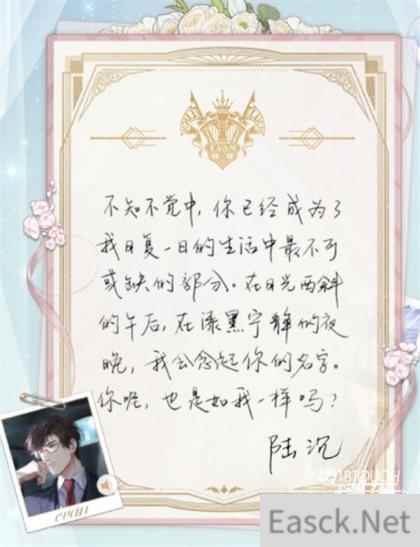 不知不觉中，你已经成为了
我日复一日的生活中最不可
或缺的部分。在日光西斜
的午后，在漆黑宁静的夜
晚，我会念起你的名字。
你呢，也是如我一样吗？
陆沉
EVAN
Easck.Net